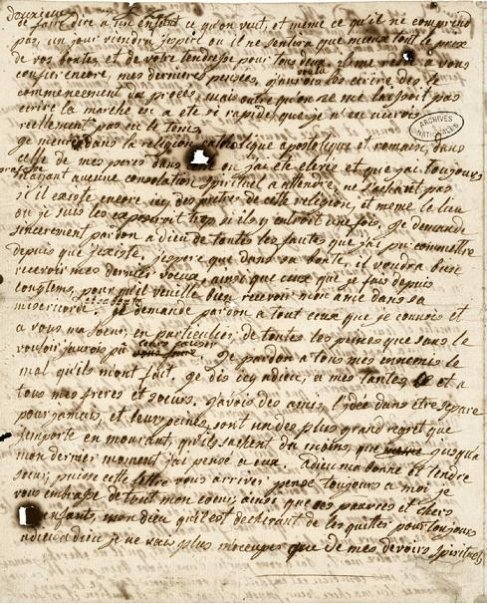 de faire dire a un enfant ce qu'on veut, et même ce qu'il ne comprend
pas, un jour viendra j'espere ou il ne sentira que mieux tout le prix
de vos bontés et de votre tendresse pour tous deux il me reste a vous
confier encore, mes dernieres pensées, j'aurois voulu les écrire des le
commencement du procès, mais outre qu'on ne me laissoit pas
ecrire la marche en a ete si rapide que je n'en aurois
reellement pas eu le tems
je meurs dans la religion catholique apostolique et romaine, dans
celle de mes peres dans ou j'ai été elevée et que j'ai toujours
n'ayant aucune consolation spirituel a attendre, ne sachant pas
s'il existe encore ici des pretres de cette religion, et meme le lieu
ou je suis les exposeroit trop si ils y entroit une fois, je demande
sincerement pardon a dieu de toutes les fautes que j'ai pu commettre
depuis que j'existe, j'espere que dans sa bonté, il voudra bien
recevoir mes dernier voeux, ainsi que ceux que je fais depuis
longtems, pour qu'il veuille bien recevoir mon ame dans sa
misericorde. je demande pardon a tout ceux que je connois et
a vous ma soeur en particulier, de toutes les peines que sans le
vouloir j'aurois pu vous causer je pardonne a tous mes ennemis le
mal qu'ils m'ont fait. je dis ici adieu, a mes tantes et a
tous mes freres et soeurs. j'avois des amis, l'idée d'en etre separé
pour jamais, et leurs peines, sont un des plus grand regret que
j'emporte en mourant, qu'ils sachent du moins, que jusqu'a
mon dernier moment j'ai pensé a eux. adieu ma bonne et tendre
soeur, puisse cette lettre vous arriver, pensé toujours a moi je
vous embrasse de tout mon coeur, ainsi que ces pauvres et chers
enfants, mon dieu qu'il est dechirant de les quitter pour toujours
adieu adieu je ne vais plus m'occuper que de mes devoirs spirituel,
ARCHIVES
NATIONALES